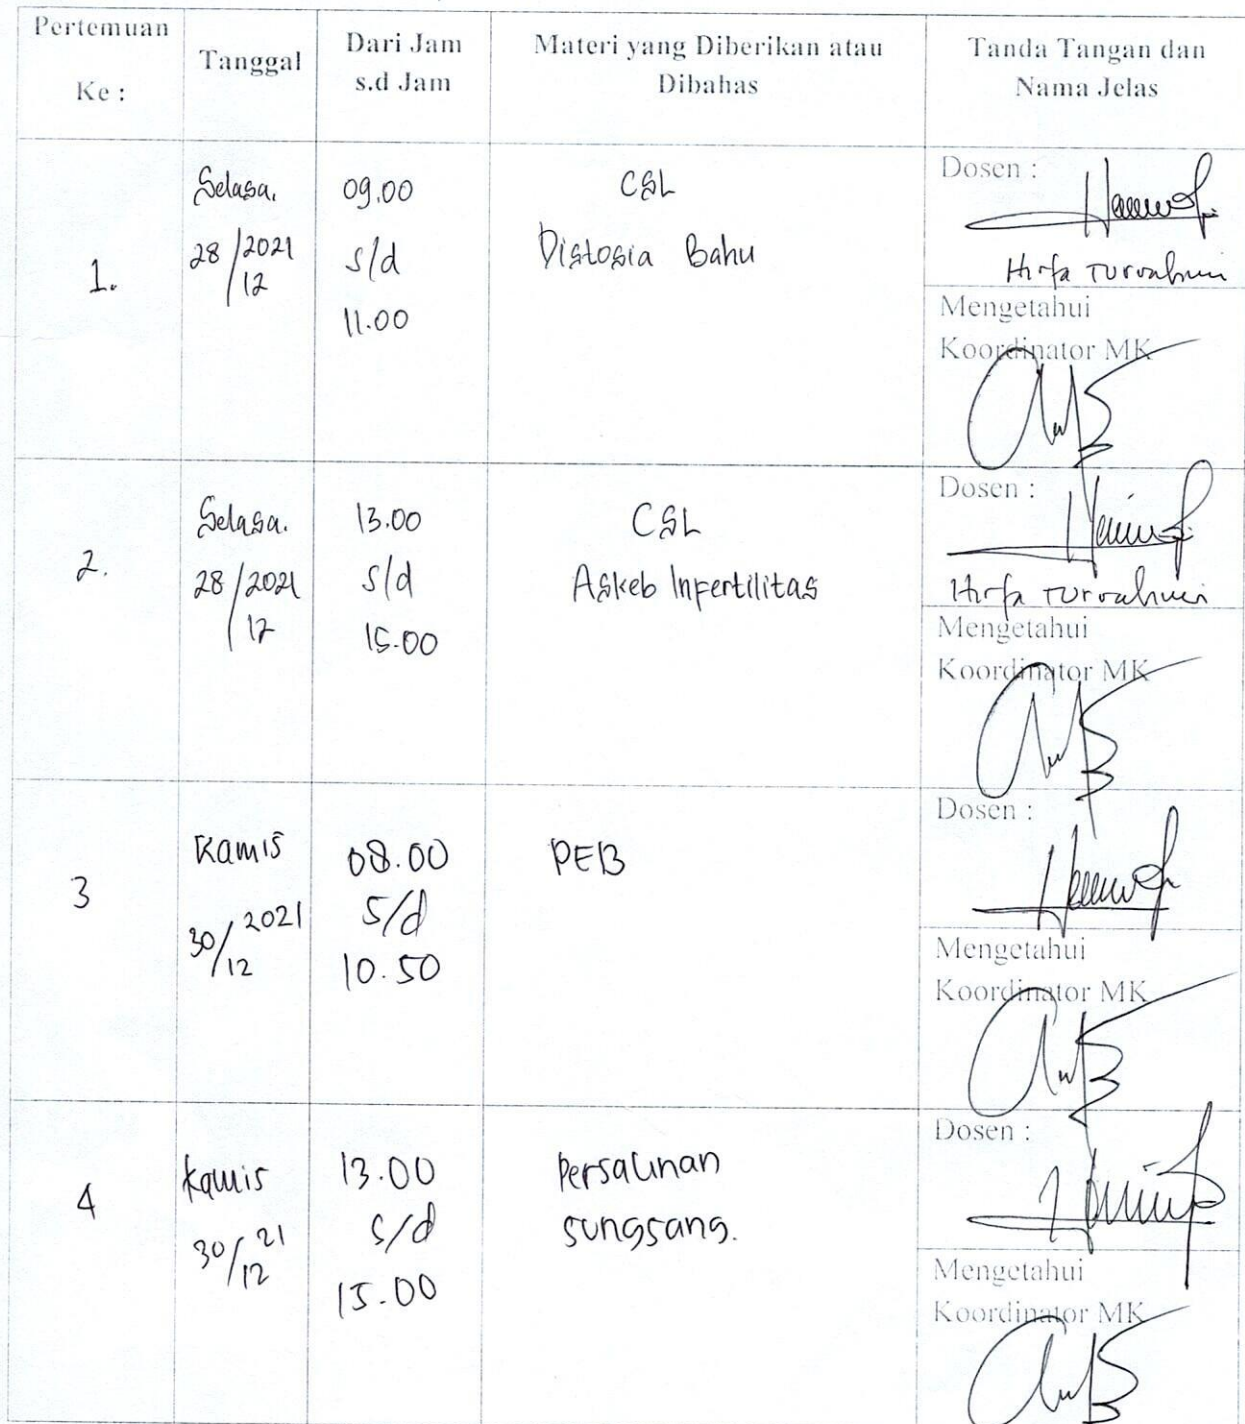 Pertemuan
Ke :
Tanggal
Dari Jam
s.d Jam
Materi yang Diberikan atau
Dibahas
Tanda Tangan dan
Nama Jelas
1.
Selasa.
28/12 2021
09.00
s/d
11.00
CSL
Distosia Bahu
Dosen :
Hirfa Turrahmi
Mengetahui
Koordinator MK
2.
Selasa.
28/12 2021
13.00
s/d
15.00
CSL
Askeb Infertilitas
Dosen :
Hirfa Turrahmi
Mengetahui
Koordinator MK
3
Kamis
30/12 2021
08.00
s/d
10.50
PEB
Dosen :
Mengetahui
Koordinator MK
4
Kamis
30/12 21
13.00
s/d
15.00
Persalinan
sungsang.
Dosen :
Mengetahui
Koordinator MK